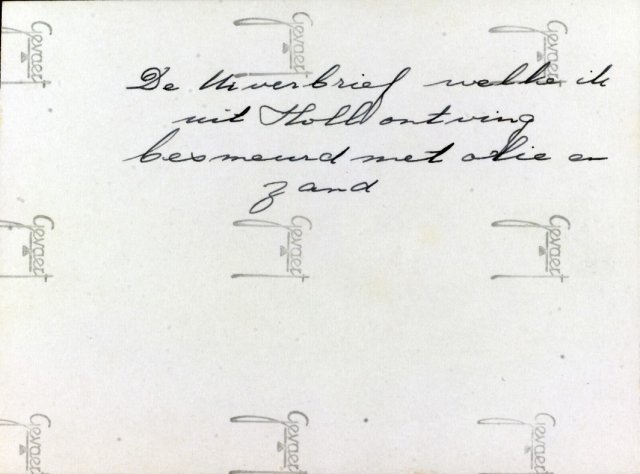 Gevaert Gevaert Gevaert
De Uiverbrief welke ik
uit Holl ontving
besmeurd met olie en
zand
Gevaert Gevaert Gevaert
Gevaert Gevaert Gevaert